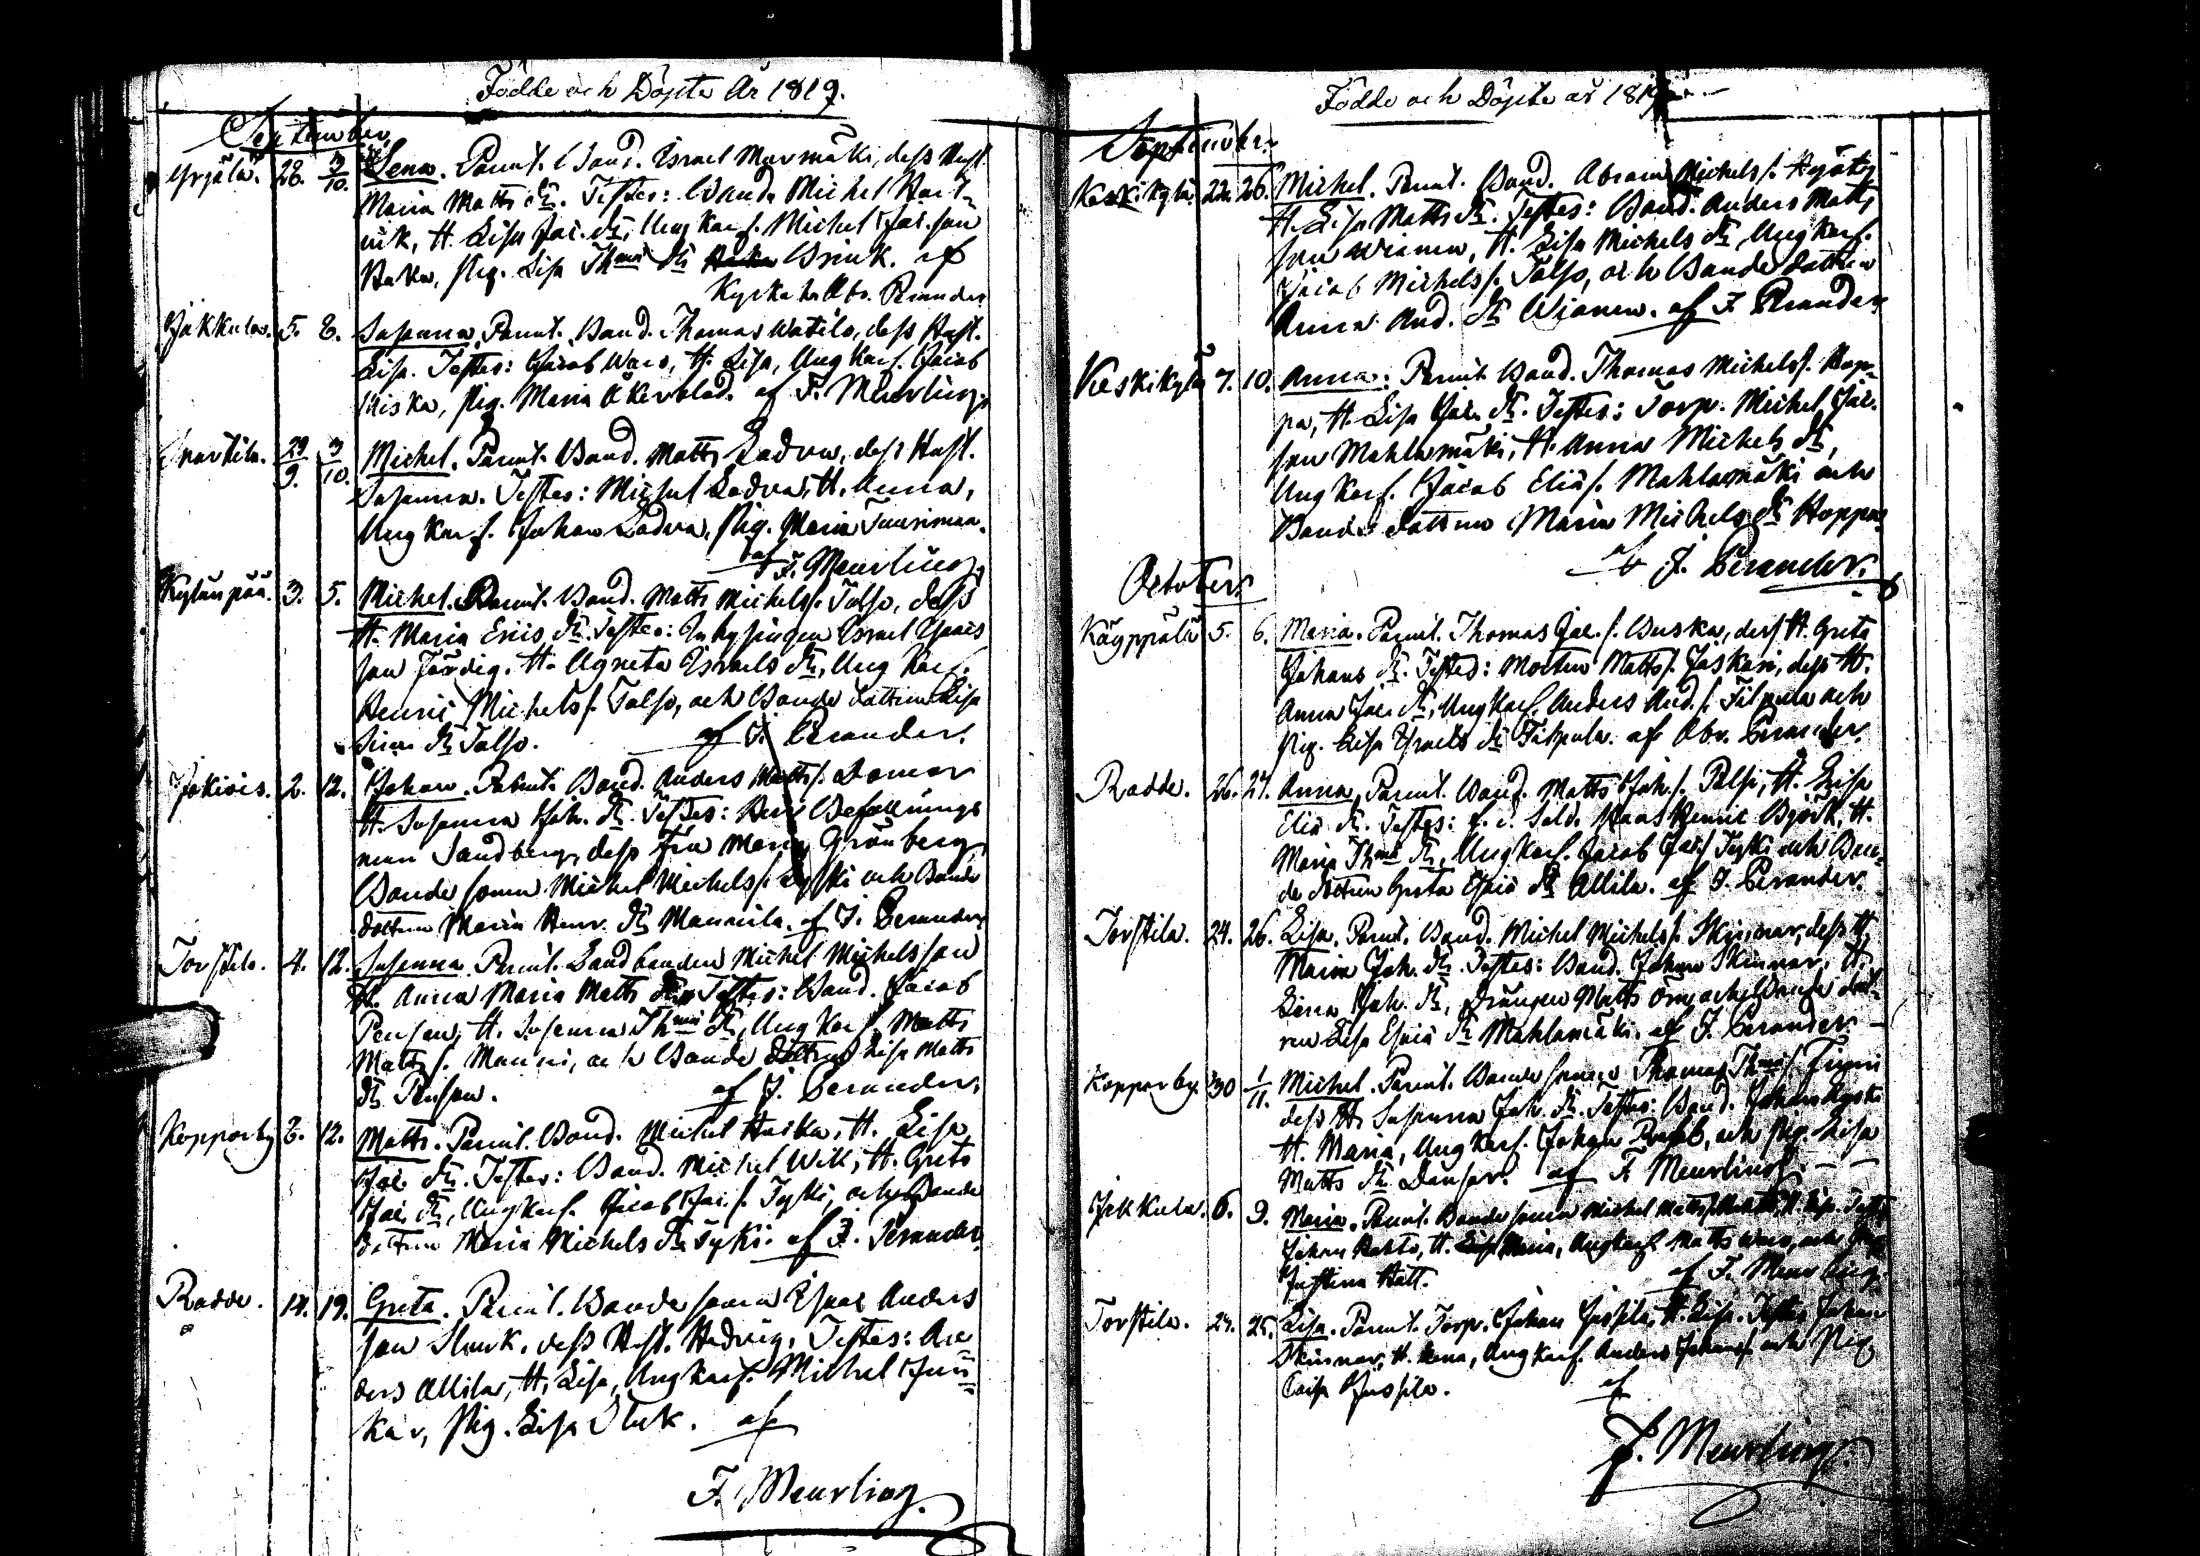 Födde och Döpte År 1819.
September
Yrjälä. 28. 3/10. Lena. Parent. Bond. Israel Murmäki, dess Hust.
Maria Matts dr. Testes: Bond. Michel
H. Lisa Jac. dr, Ung Karl. Michel Jac. son
Pig. Lisa Thms dr Brink. af
Abr. Perander
Jakkula. 5. 8. Susanna. Parent. Bond. Thomas Watila, dess Hust.
Lisa. Testes: Jacob Waro, H. Lisa, Ung Karl. Jacob
Kiska, Pig. Maria Åkerblad. af F. Meurling.
29/9. 3/10. Michel. Parent. Bond. Matts Ladva, dess Hust.
Susanna. Testes: Michel Ladva, H. Anna,
Ung Karl. Johan Ladva, Pig. Maria
af F. Meurling.
Kylänpää. 3. 5. Michel. Parent. Bond. Matts Michelss. Talso, dess
H. Maria Eriks dr. Testes: Inhysingen Israel Isaacs
son Färdig. H. Agneta Israels dr, Ung Karl.
Henric Michelss. Talso, och Bonde dottren Lisa
Sim. dr Talso. af J. Perander.
Jokiois. 2. 12. Johan. Parent. Bond. Anders Mattss. Domar
H. Susanna Joh. dr. Testes: Herr Befallnings
man Sandberg, dess Fru Maria Grönberg,
Bonde sonen Michel Michelss. och Bonde
dottren Maria Henr. dr Mannila. af J. Perander
Torstila. 4. 12. Susanna. Parent. Landbonden Michel Michelsson
H. Anna Maria Matts dr. Testes: Bond. Jacob
Pensar, H. Susanna Thms dr, Ung Karl. Matts
Matts s. Manni, och Bonde dottren Lisa Matts
dr Pensar. af J. Perander.
Kopparby 8. 12. Matts. Parent. Bond. Michel Haika, H. Lisa
Jac. dr. Testes: Bond. Michel Will, H. Greta
Jac. dr, Ung Karl. Jacob Jac. s. Tyski, och Bonde
dottren Maria Michels dr Tyski. af J. Perander
Radde. 14. 19. Greta. Parent. Bonde sonen Isaac Anders
son Sluuk, dess Hust. Hedvig. Testes: An
ders Allila, H. Lisa, Ung Karl. Michel Jun
kar, Pig. Lisa Sluk. af
F. Meurling.
Födde och Döpte år 1819.
September
Keskikylä 22. 26. Michel. Parent. Bond. Abram Michelss.
H. Lisa Matts dr. Testes: Bond. Anders Matts
son Wianen, H. Lisa Michels dr, Ung Karl.
Jacob Michelss. Talso, och Bonde dottren
Anna And. dr Wianen. af J. Perander
Keskikylä 7. 10. Anna. Parent. Bond. Thomas Michelss. Hop-
pa, H. Lisa Jac. dr. Testes: Torp. Michel Jac.
son Mahlamäki, H. Anna Michels dr,
Ung Karl. Jacob Elias. Mahlamäki och
Bonde dottren Maria Michels dr Hoppa
af J. Perander.
October
Käyppälä 5. 6. Maria. Parent. Thomas Jac. s. Buska, dess H. Greta
Johans dr. Testes: Morten Mattss. Jaskari, dess H.
Anna Jac. dr, Ung Karl. Anders And. s. Filpula och
Pig. Lisa Israels dr Filpula. af Abr. Perander.
Radde. 26. 27. Anna. Parent. Bond. Matts Joh. s. Palsi, H. Lisa
Elia dr. Testes: f. d. Sold. Henric Björk, H.
Maria Thms dr, Ung Karl. Jacob Jac. s. Tyski och Bon-
de dottren Greta Esaiä dr Allila. af J. Perander.
Torstila. 24. 26. Lisa. Parent. Bond. Michel Michelss. Skinnar, dess H.
Maria Joh. dr. Testes: Bond. Johan Skinnar, H.
Lena Joh. dr, Drängen Matts Örn, och Bonde dott-
ren Lisa Esaiä dr Mahlamäki. af J. Perander.
Kopparby. 30 1/11. Michel. Parent. Bonde sonen Thomas Thms s.
dess H. Susanna Joh. dr. Testes: Bond. Johan
H. Maria, Ung Karl. Johan och Pig. Lisa
Matts dr Danser. af F. Meurling.
Jakkula. 6. 9. Maria. Parent. Bonde sonen Michel Mattss. H. Lisa. Testes
Johan H. Maria, Ung Karl Matts Waro, och Pig.
Justina Hatt. af F. Meurling.
Torstila. 24. 25. Lisa. Parent. Torp. Johan Jussila, H. Lisa. Testes Johan
Skinnar, H. Lena, Ung Karl. Anders Johanss. och Pig.
Caisa Jussila. af
F. Meurling.